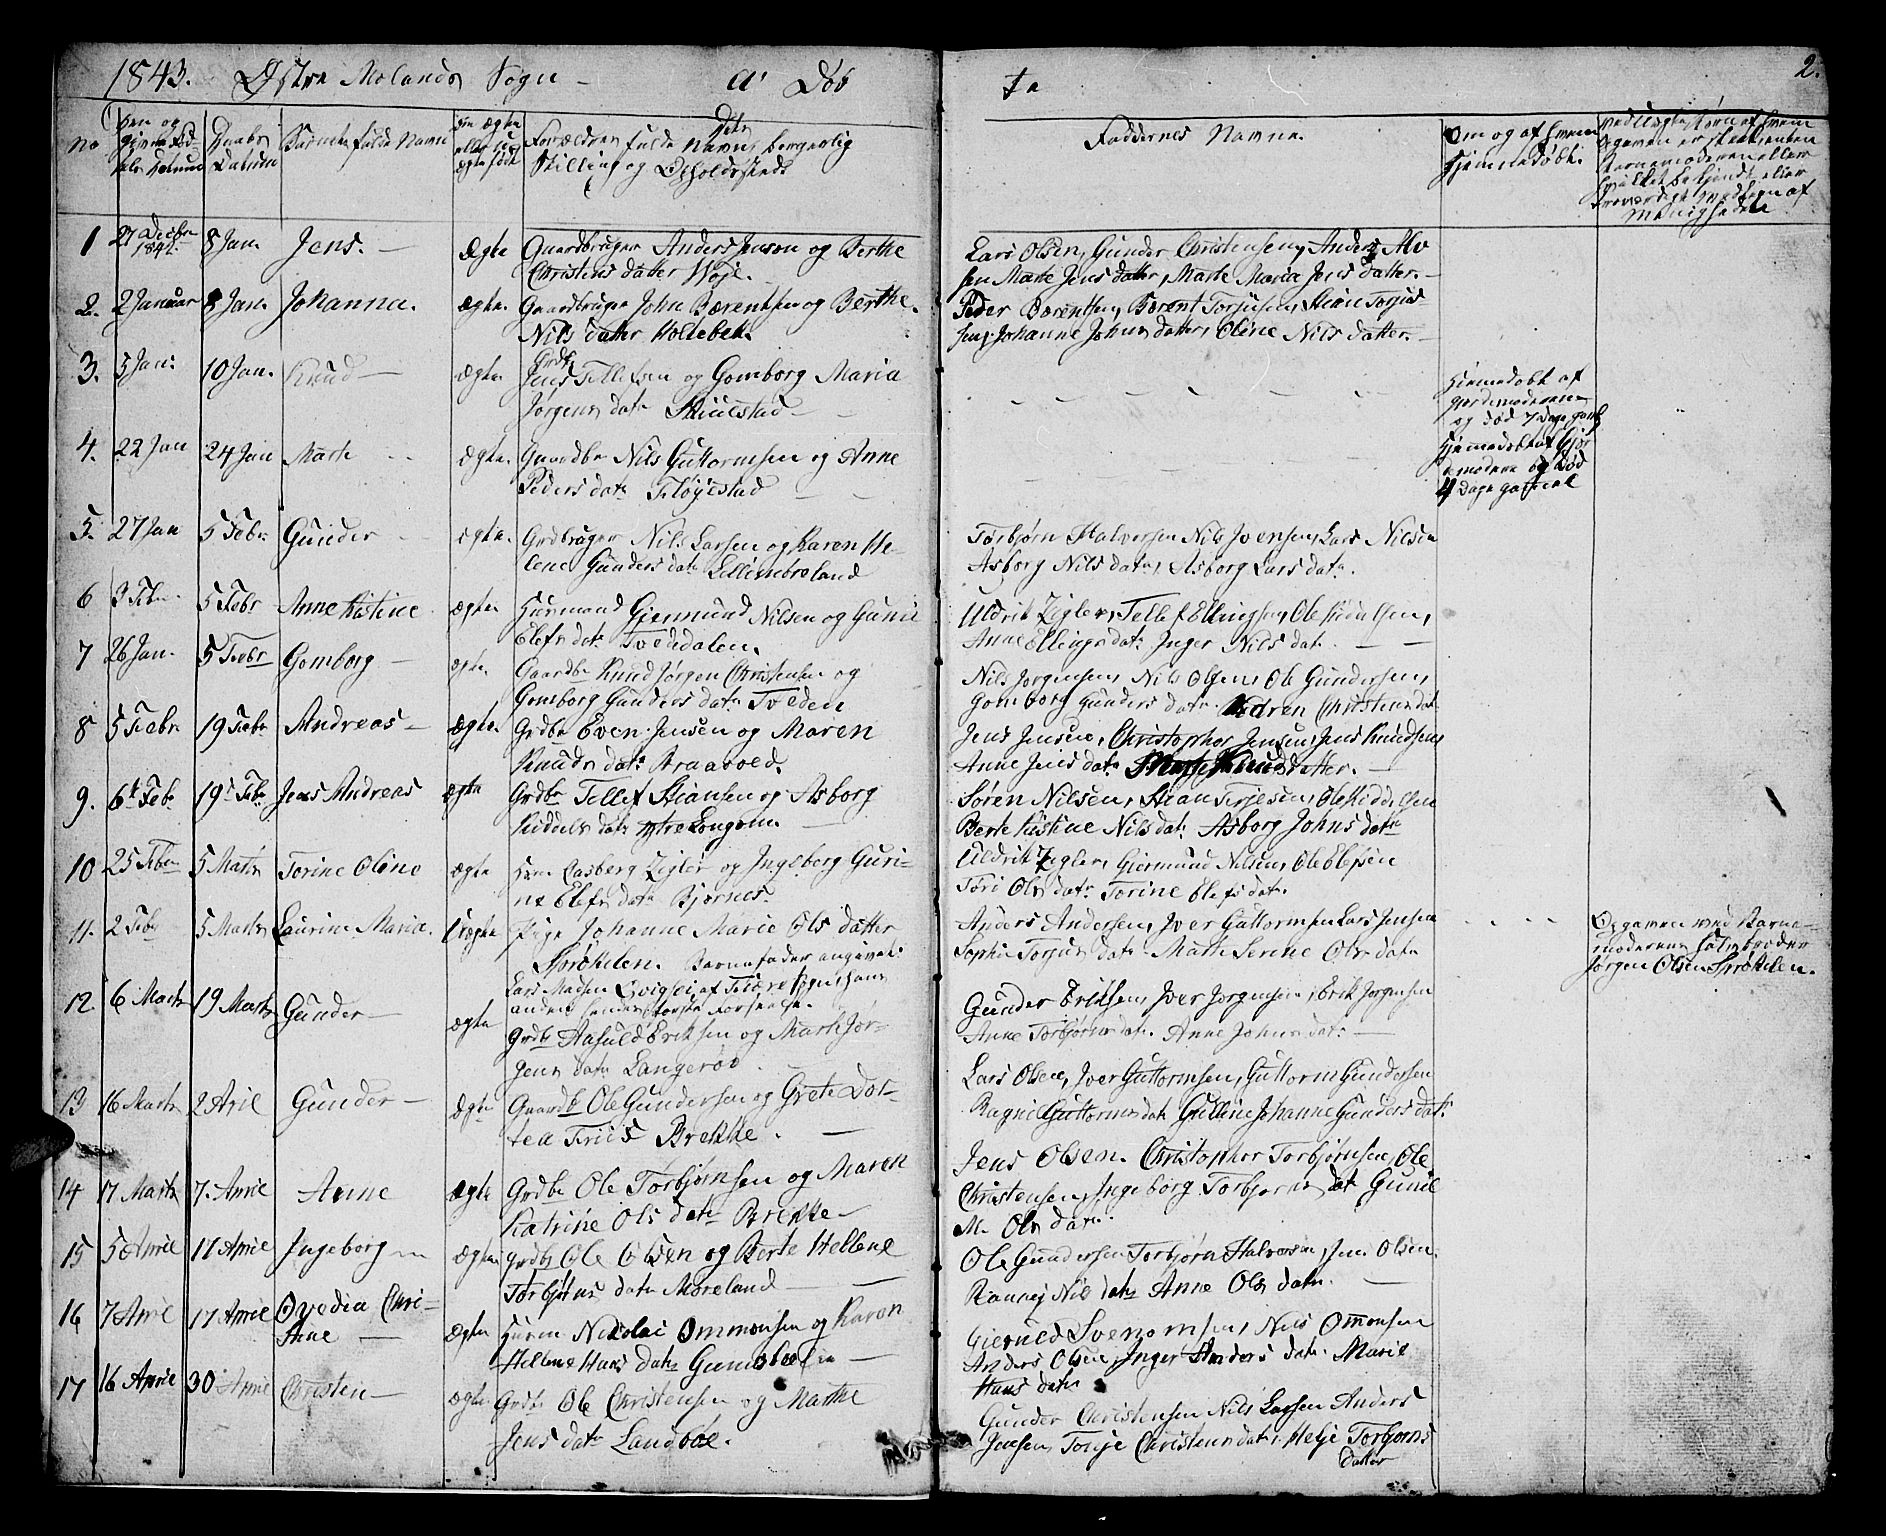 1843. Østre Molands Sogn – a' Døb
te 2.
No
Daabs Datum
Barnets fulde Navn
Forældrenes fulde Navn, borgerlig
Stilling og Opholdssteds
Faddernes Navne.
Om og af hvem
hjemmedøbt.
1 27 Decbr 1842 8 Jan. Jens. – Ægte Gaardbruger Anders Jenson og Berthe
Christens datter Woje.
Lars Olsen, Gunder Christensen, Anders Alv
sen Marte Jens datter, Marte Maria Jens datter. –
2. 2 Januar 8 Jan. Johanna. ægte. Gaardbruger John Bærentsen og Berthe
Nils datter Holtebek.
Peder Bærentsen, Bærent Torjusen, Stian Torjus
sen, Johanne Johns datter, Oline Nils datter. –
3. 5 Jan. 10 Jan. Knud – ægte Grdb.
Jens Tellefsen og Gomborg Maria
Jørgens dat.
Hiemedøbt af
og død 7 dage
4. 22 Jan 24 Jan Marte ægte. Gaardbr Nils Guttormsen og Anne
Peders dat. Fløjestad
og Død
4 Dage gammel
5. 27 Jan 5 Febr. Gunder ægte. Grdbruger Nils Larsen og Karen He-
lene Gunders dat.
Torbjørn Halvorsen Nils Iversen, Lars Nilsen
Asborg Nils dat., Asborg Lars dat.
6 3 Febr. 5 Febr Anne Kistine ægte Huusmand Gjermund Nilsen og Guni
Elefs dat. Tvededalen.
Uldrik Zigler, Tellef Ellingsen, Ole Kidulsen,
Anne Ellings dat. Inger Nils dat. –
7 26 Jan. 5 Febr Gomborg – ægte. Gaardbr Knud Jørgen Christensen og
Gomborg Gunders dat. Tveden
Nils Jørgensen, Nils Olsen, Ole Gundersen,
Gomborg Gunders dat. Karen Christens dat
8 5 Febr 19 Febr Andreas – ægte. Grdbr Even Jensen og Maren
Knuds dat. Braavold.
Jens Jensen, Christopher Jensen, Jens Knudsen,
Anne Jens dat. Marte Knuds datter. –
9. 6t Feb. 19d Feb. Jens Andreas ægte Grdbr Tellef Stiansen og Asborg
Kiddels dat. ytre Longum.
Søren Nilsen, Stian Terjesen, Ole Kiddelsen
Berte Kistine Nils dat. Asborg Johns datr
10 25 Febr 5 Marts Torine Oline ægte Huus. Casberg Zigler og Ingeborg Guri-
ne Elefs dat. Bjørnes.
Uldrik Zigler, Giermund Nilsen, Ole Elefsen
Tori Ols dat. Torine Elefs dat.
11. 2 Feb 5 Marts Laurine Maria. Uægte Pige Johanne Marie Ols datter
Sprøkelen. Barnefader angivet:
Lars Madsen
anden
Anders Andersen, Iver Guttormsen Lars Jensen
Sophie Torjus dat. Marte Serine Ols dat
Opgaven ved Barne-
moderens halvbroder
Jørgen Olsen Sprøkelen.
12. 6 Marts 19 Marts Gunder – ægte Grdbr Aasuld Eriksen og Marte Jør-
gens dat. Langerød.
Gunder Eriksen, Iver Jørgensen, Erik Jørgensen
Anne Torbjørns dat. Anne Johns dat. –
13 16 Marts 2 April Gunder – ægte Gaardb Ole Gundersen og Grete Dor-
tea Friis Brekke. –
Lars Olsen, Iver Guttormsen, Guttorm Gundersen
Ragni Guttorms dat Gulline Johanne Gunders dat.
14 17 Marts 7. April Anne ægte Grdbr Ole Torbjørnsen og Maren
Katrine Ols dat. Brekke –
Jens Olsen. Christopher Torbjørnsen, Ole
Christensen, Ingeborg Torbjørns dat Gunil
M. Ols dat.
15 5 April 17 April Ingeborg – ægte Grdbr Ole Olsen og Berte Hellene
Torbjørns dat. Moreland –
Ole Gundersen Torbjørn Halvorsen, Jens Olsen.
Rannej Nils dat. Anne Ols dat. –
16 7 April 17 April Ovedia Chri-
stine – ægte Huusm Nikolai Ommonsen og Karen
Hellene Hans dat.
Giernuld Svenomsen, Nils Ommonsen
Anders Olsen, Inger Anders dat. Marie
Hans dat.
17 16 April 30 April Christen – ægte Grdbr Ole Christensen og Marthe
Jens dat. Landbøe.
Gunder Christensen Nils Larsen Anders
Jensen, Tonje Christens dat. Helje Torbjørns
datter